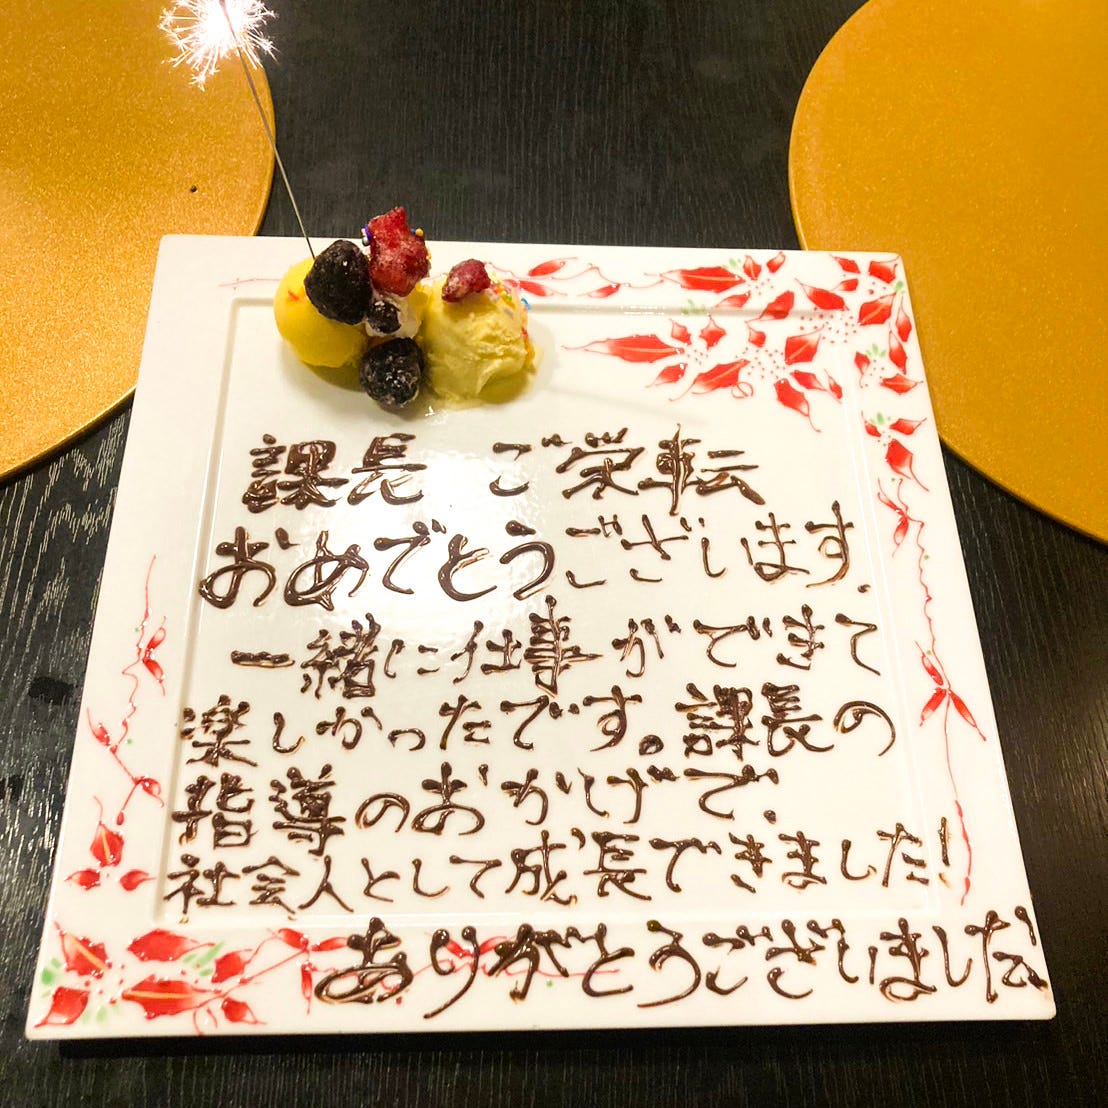 課長 ご栄転
おめでとうございます.
一緒に仕事ができて
楽しかったです。課長の
指導のおかげで.
社会人として成長できました!
ありがとうございました